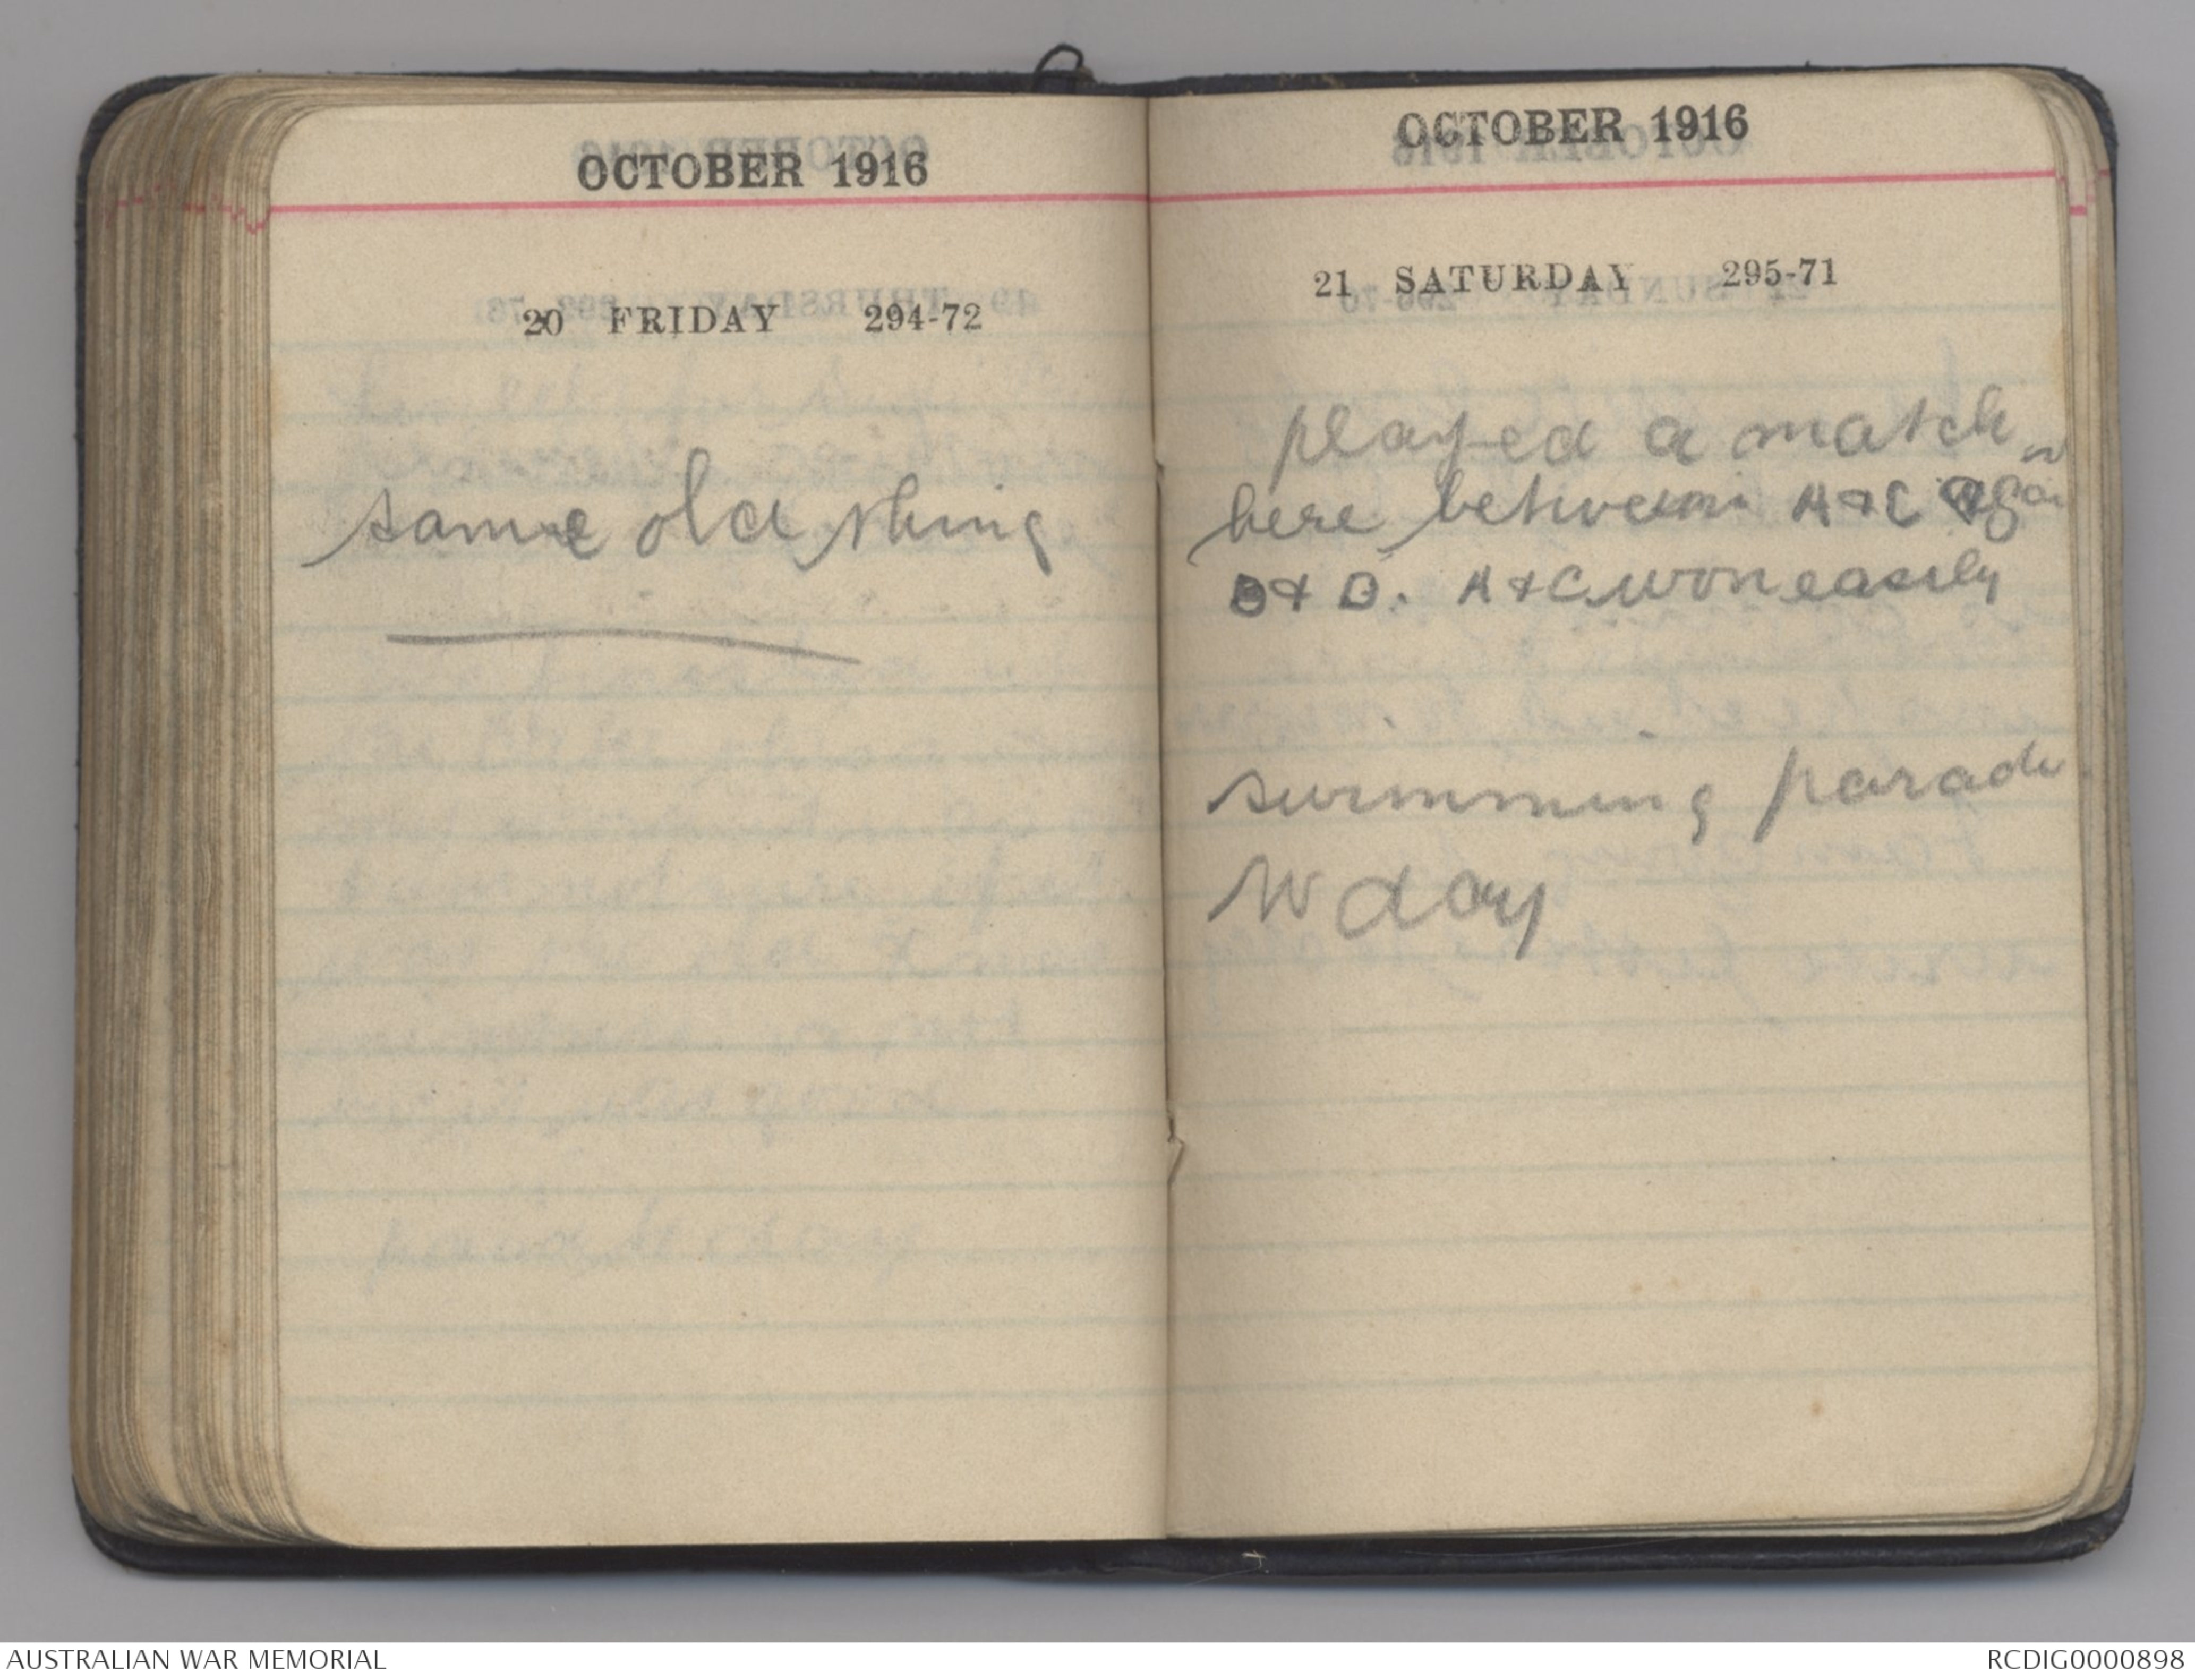 OCTOBER 1916
20 FRIDAY 294-72
same old thing
OCTOBER 1916
21 SATURDAY 295-71
played a match
here between A & C
B & D. A & C won easily
swimming parade
to day
AUSTRALIAN WAR MEMORIAL
RCDIG0000898